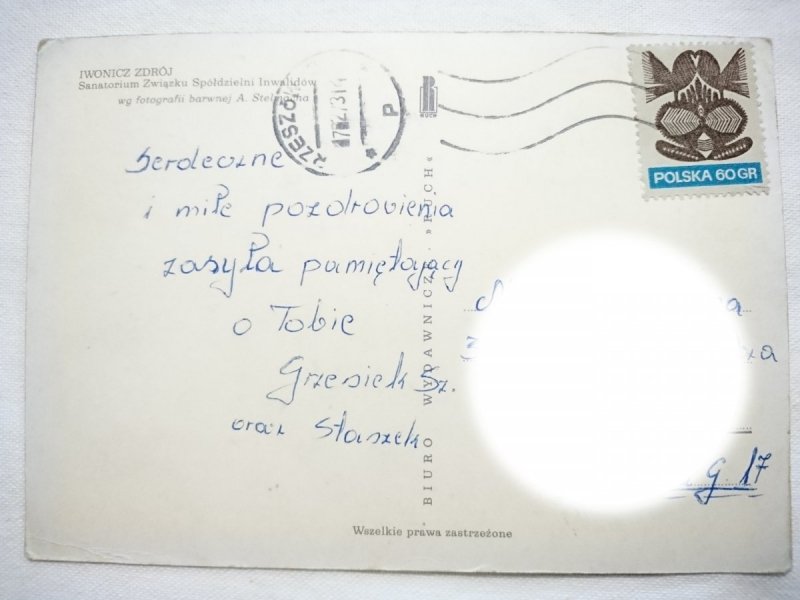 IWONICZ ZDRÓJ
Sanatorium Związku Spółdzielni Inwalidów
wg fotografii barwnej A. Stelmacha
RZESZÓW
P
RUCH
POLSKA 60 GR
Serdeczne
i miłe pozdrowienia
zasyła pamiętający
o Tobie
Grzesiek Sz.
oraz Staszek
BIURO WYDAWNICZE »RUCH«
G 17
Wszelkie prawa zastrzeżone